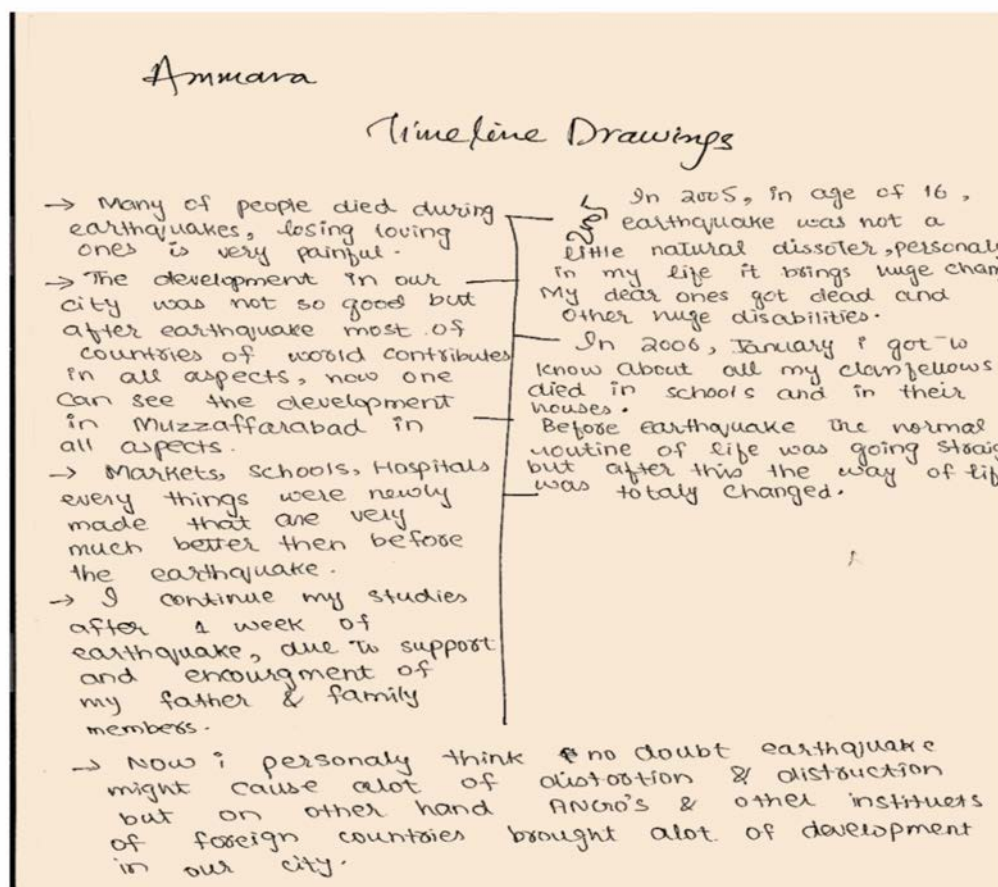 Ammara
Timeline Drawings
→ Many of people died during
earthquakes, losing loving
ones is very painful.
→ The development in our
city was not so good but
after earthquake most of
countries of world contributes
in all aspects, now one
can see the development
in Muzzaffarabad in
all aspects.
→ Markets, Schools, Hospitals
every things were newly
made that are very
much better then before
the earthquake.
→ I continue my studies
after 1 week of
earthquake, due to support
and encourgment of
my father & family
members.
In 2005, in age of 16,
earthquake was not a
little natural dissoter, personaly
in my life it brings huge chan
My dear ones got dead and
other huge disabilities.
In 2006, January i got to
know about all my classfellows
died in schools and in their
houses.
Before earthquake the normal
routine of life was going straig
but after this the way of lif
was totaly changed.
→ Now i personaly think no doubt earthquake
might cause alot of distortion & distruction
but on other hand & other instituets
of foreign countries brought alot of development
in our city.